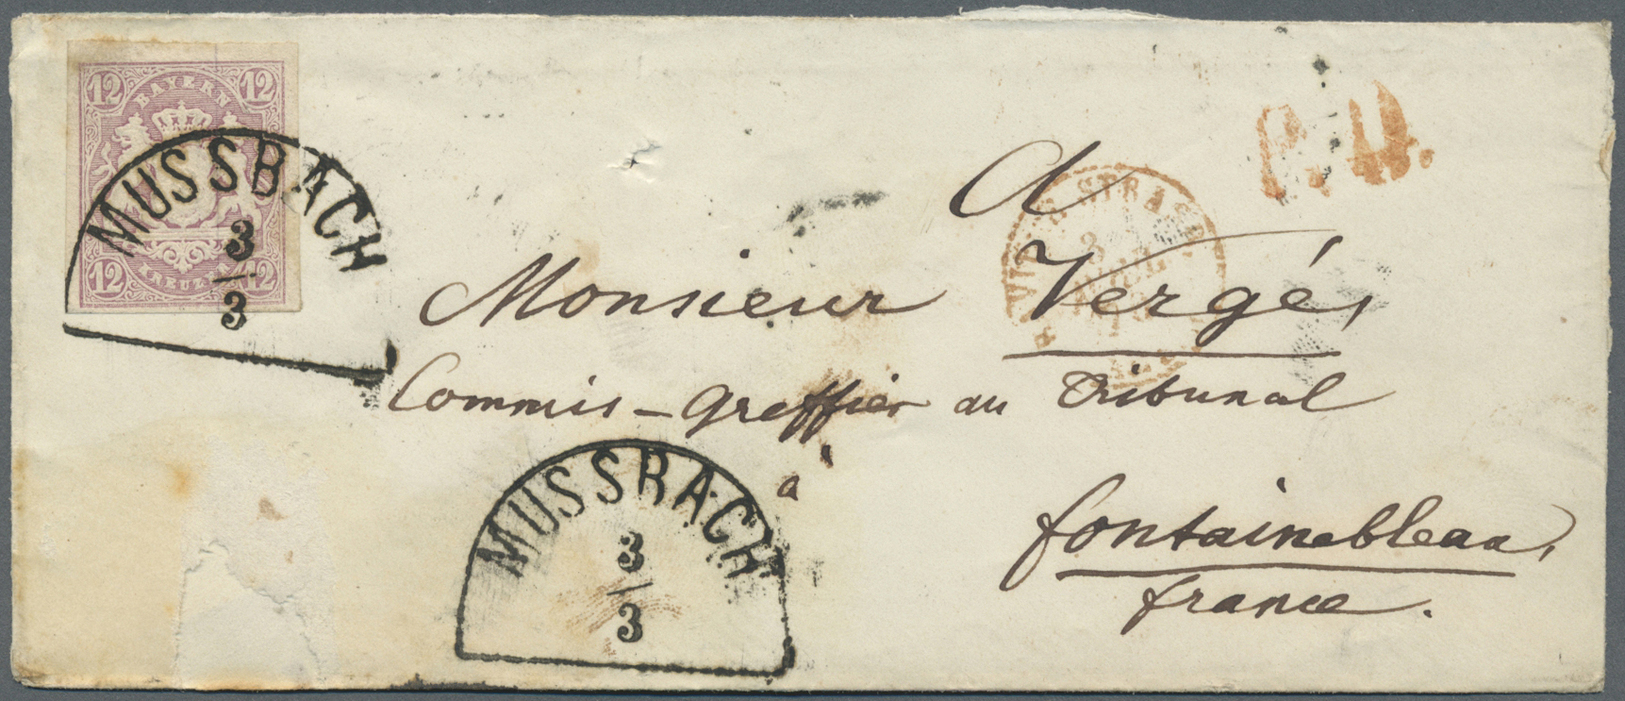 12 12
BAYERN
12 KREUZER 12
MUSSBACH
3
3
P.D.
A
Monsieur Vergé,
Commis-Greffier au Tribunal
à
fontainebleau,
france.
MUSSBACH
3
3